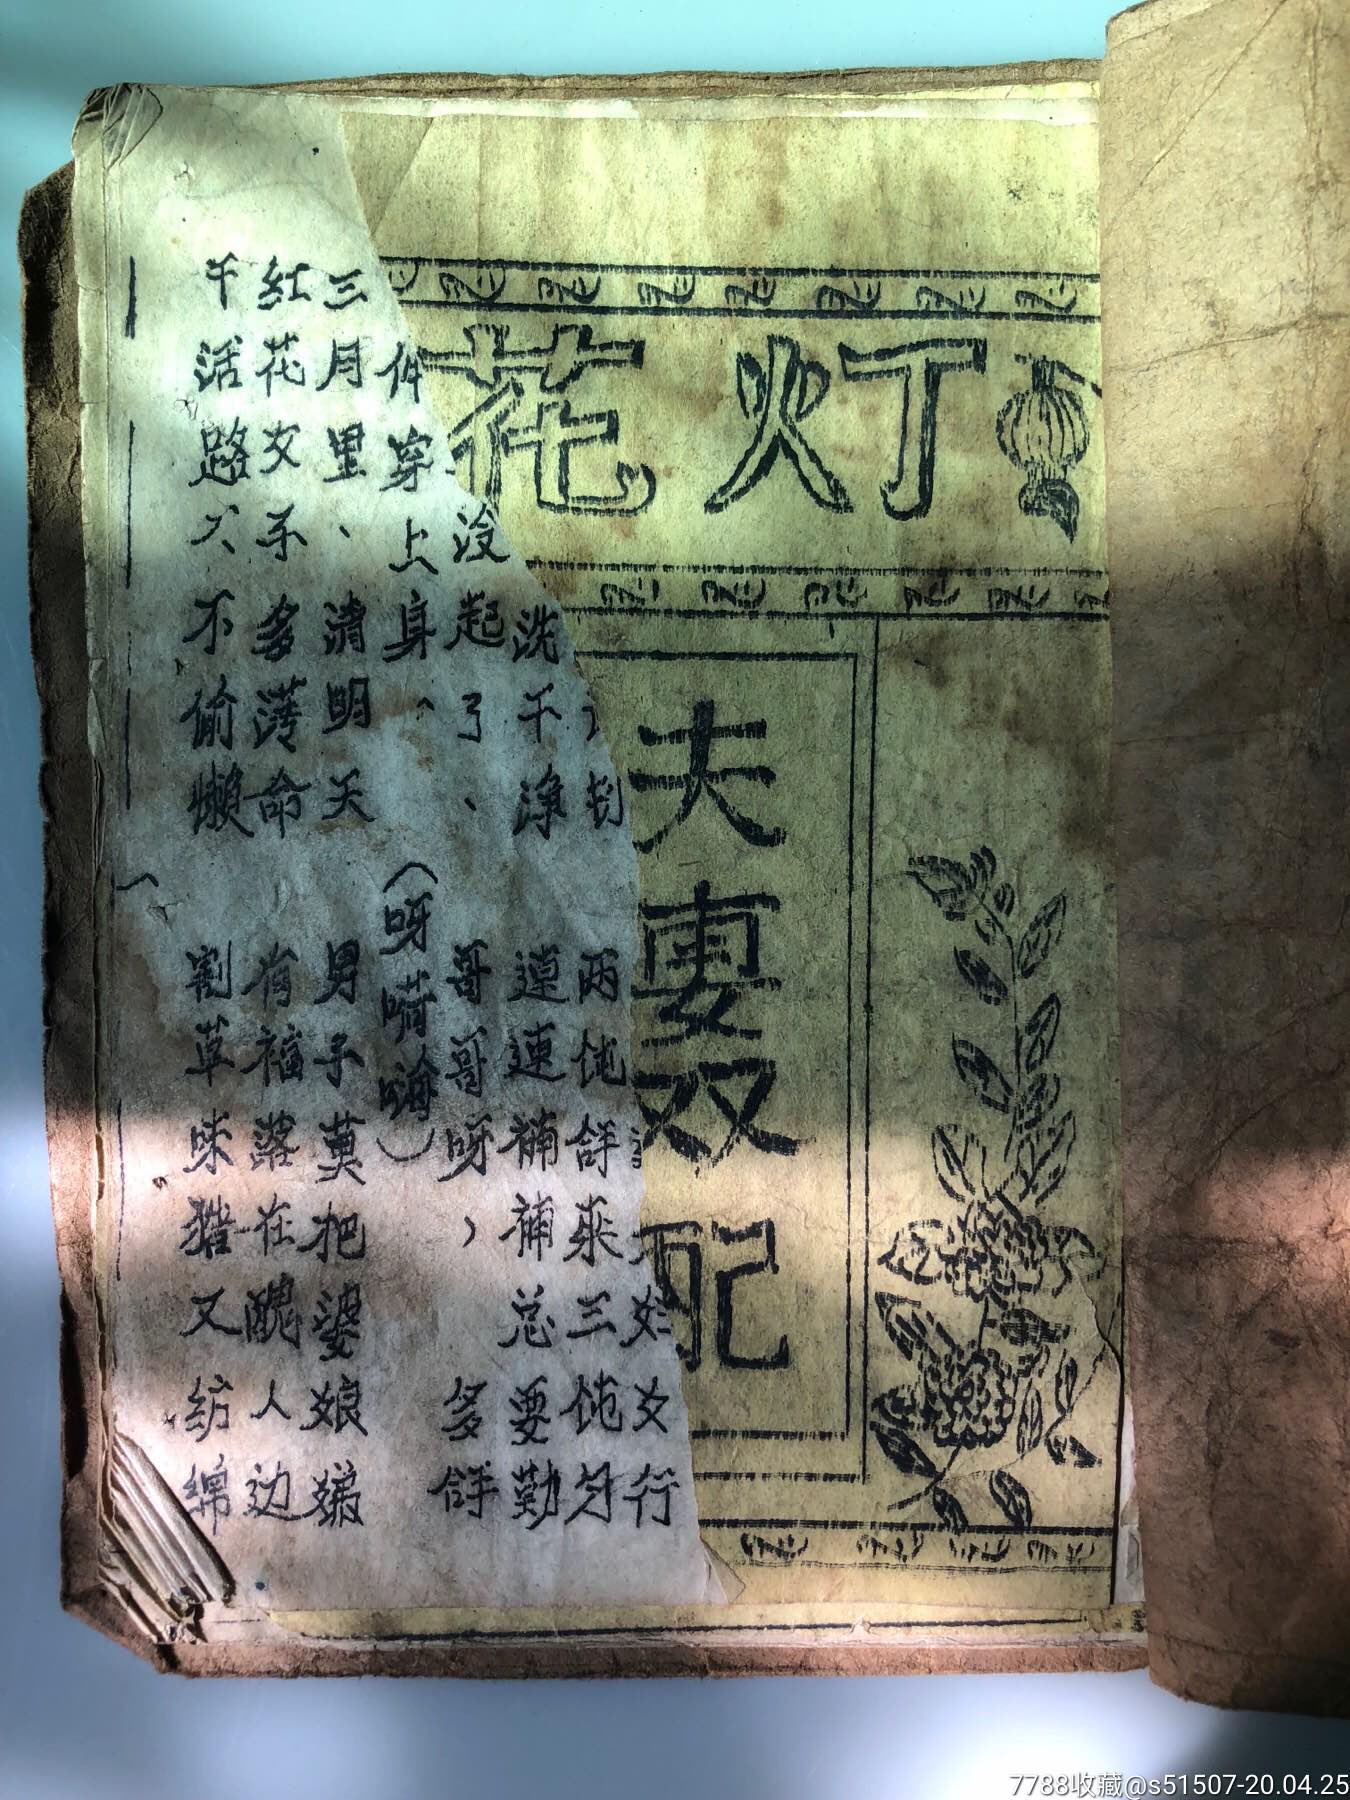 花灯
夫妻双配
女行
两饨 来三饨匀
洗干净 連連補補总要勤
没起了、 哥哥呀、 多
件穿上身、(呀嗬嗨)
三月里、清明天 男子莫把婆娘嫌
红花女子多薄命 有福落在醜人边
干活路人不偷懒 割草喂猪又纺綿
7788收藏@s51507-20.04.25